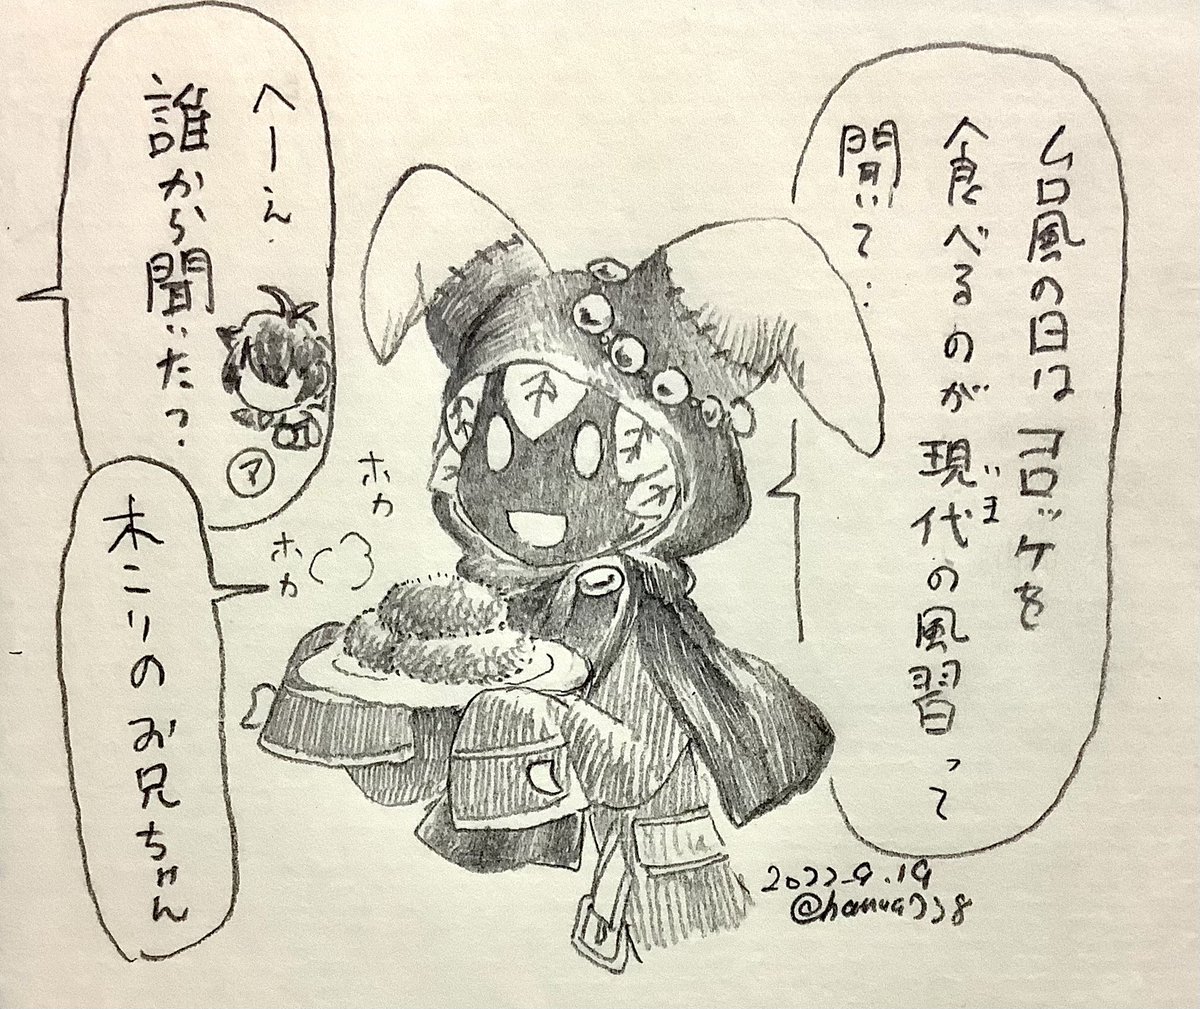 台風の日はコロッケを
食べるのが現代の風習って
いま
聞いて…
へーぇ.
誰から聞いた?
ア
木こりのお兄ちゃん
ホカ
ホカ
2022.9.19